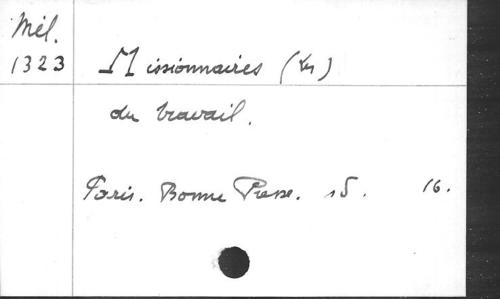 Mél.
1323 Missionnaires (Les)
du travail.
Paris. Bonne Presse. sd. 16.